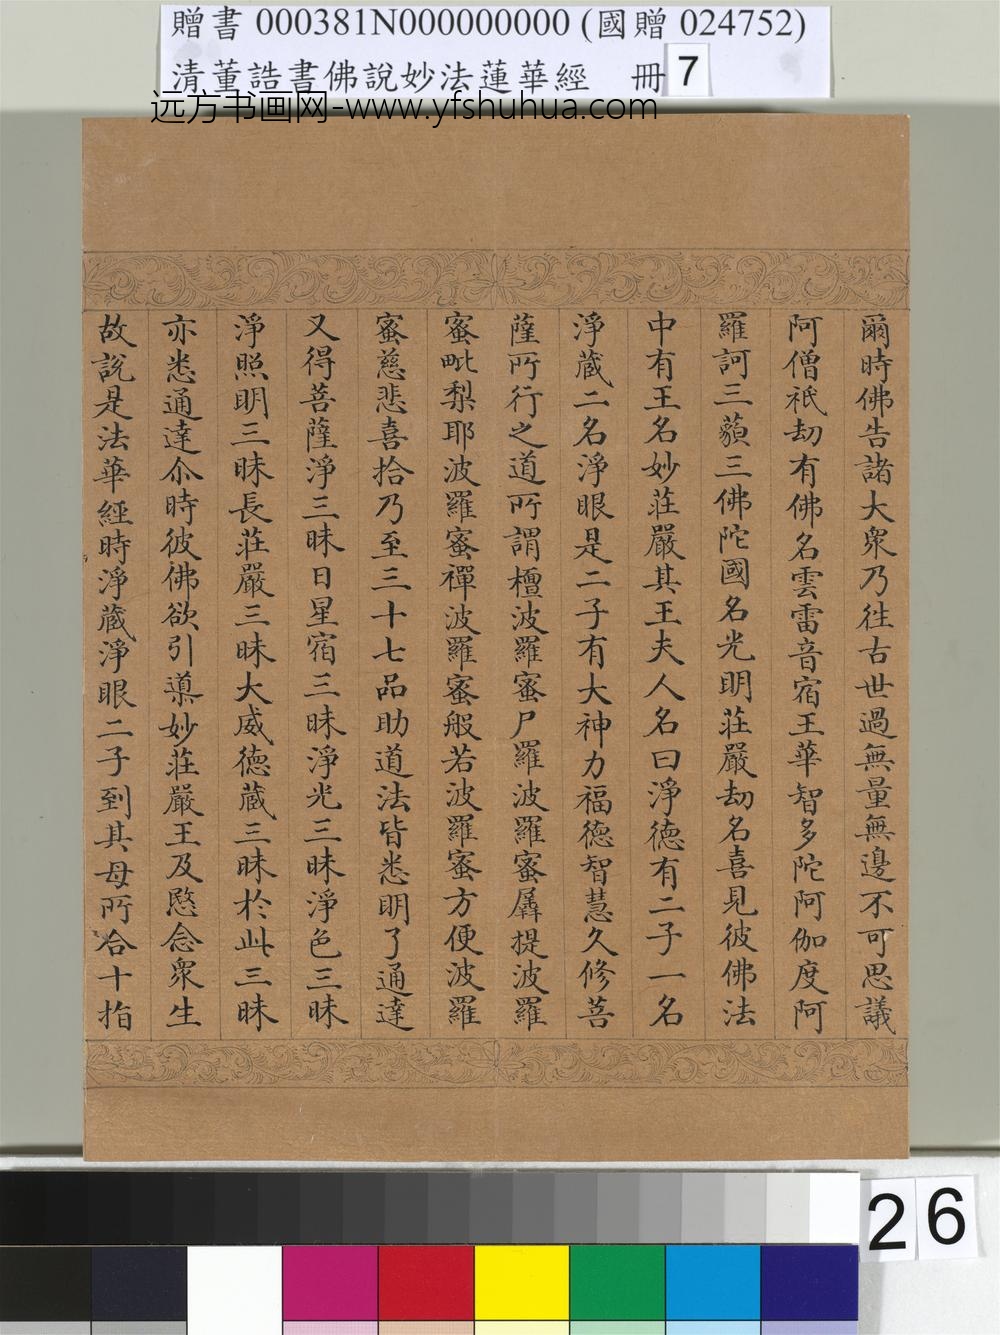 贈書 000381N000000000 (國贈 024752)
清董誥書佛說妙法蓮華經 冊 7
远方书画网-www.yfshuhua.com
爾時佛告諸大衆乃徃古世過無量無邊不可思議
阿僧祇劫有佛名雲雷音宿王華智多陀阿伽度阿
羅訶三藐三佛陀國名光明莊嚴劫名喜見彼佛法
中有王名妙莊嚴其王夫人名曰淨德有二子一名
淨藏二名淨眼是二子有大神力福德智慧久修菩
薩所行之道所謂檀波羅蜜尸羅波羅蜜羼提波羅
蜜毗梨耶波羅蜜禪波羅蜜般若波羅蜜方便波羅
蜜慈悲喜捨乃至三十七品助道法皆悉明了通達
又得菩薩淨三昧日星宿三昧淨光三昧淨色三昧
淨照明三昧長莊嚴三昧大威德藏三昧於此三昧
亦悉通達尒時彼佛欲引導妙莊嚴王及愍念衆生
故說是法華經時淨藏淨眼二子到其母所合十指
26